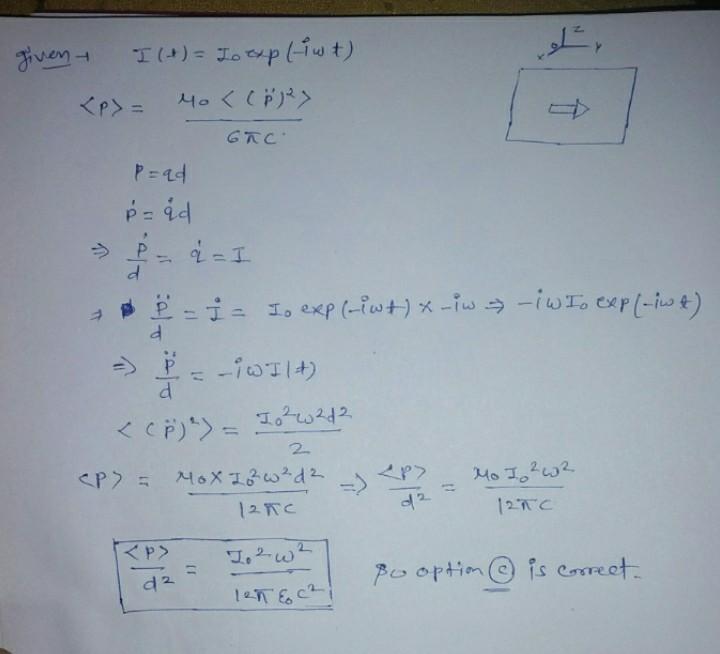 given → I(t) = I₀ exp(-iωt)
z
x y
<P> = μ₀ <(p̈)²> / 6πc
P = qd
ṗ = q̇d
⇒ ṗ/d = q̇ = I
⇒ p̈/d = İ = I₀ exp(-iωt) × -iω ⇒ -iωI₀ exp(-iωt)
⇒ p̈/d = -iωI(t)
<(p̈)²> = I₀²ω²d² / 2
<P> = μ₀ × I₀²ω²d² / 12πc ⇒ <P>/d² = μ₀I₀²ω² / 12πc
<P>/d² = I₀²ω² / 12πε₀c² So option (c) is correct.